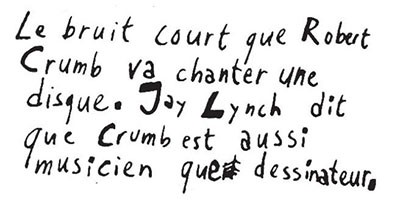 Le bruit court que Robert
Crumb va chanter une
disque. Jay Lynch dit
que Crumb est aussi
musicien que dessinateur.